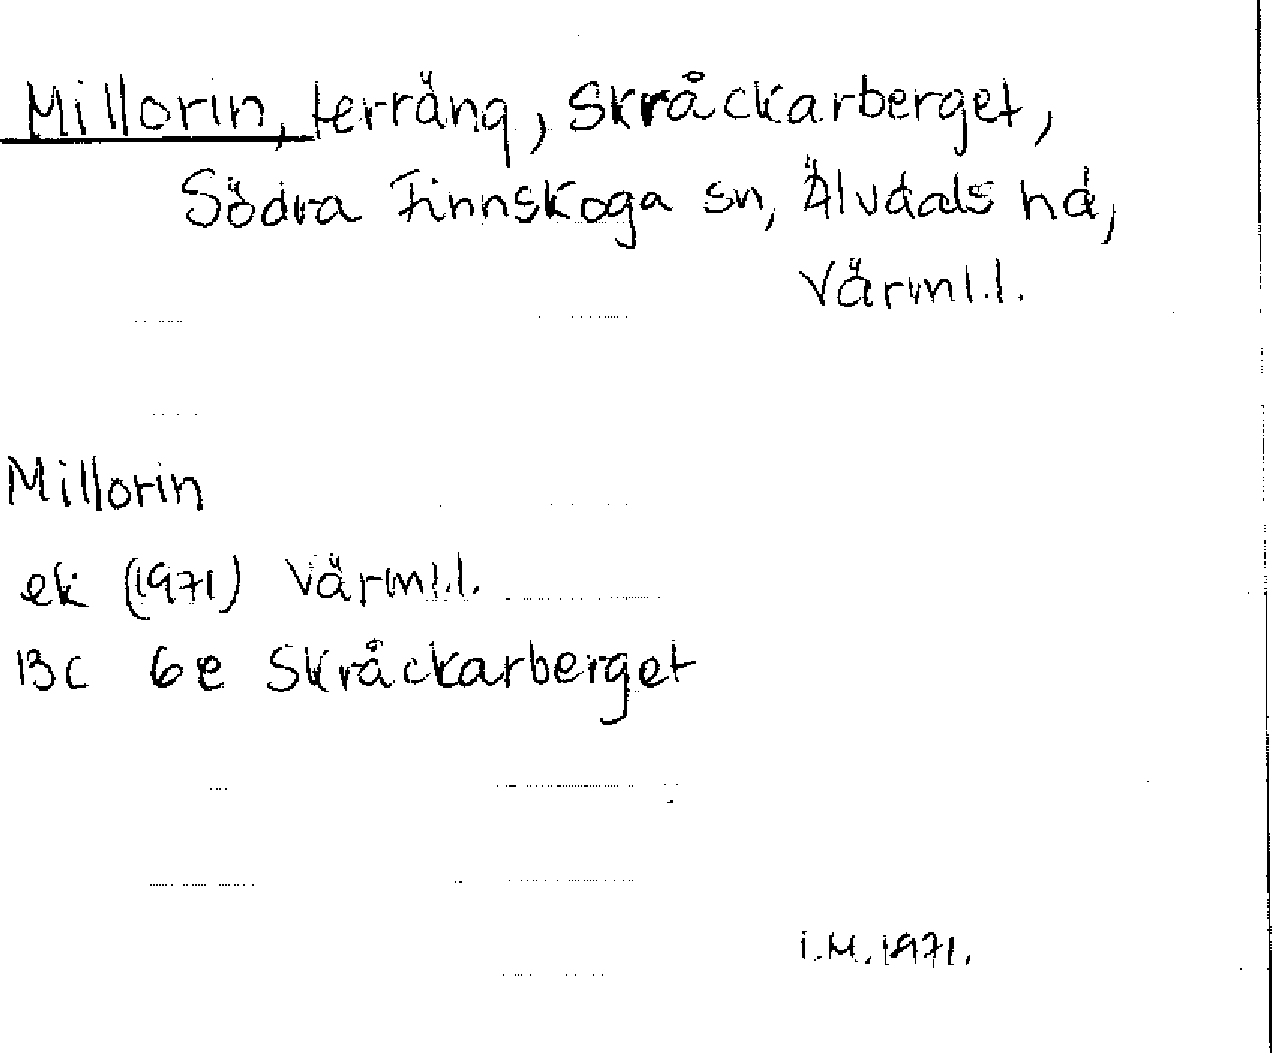 Millorin, terräng, Skråckarberget,
Södra Finnskoga sn, Älvdals hd,
Värml.l.
Millorin
ek (1971) Värml.l.
13c 6e Skråckarberget
i.M.1971.